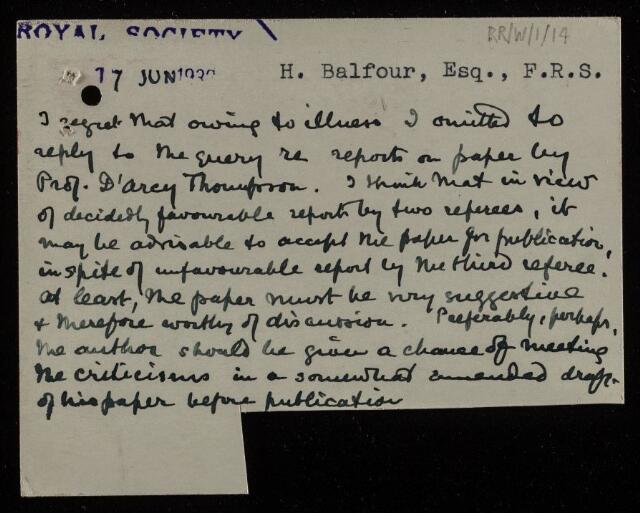 ROYAL SOCIETY
RR/W/1/14
17 JUN 1932
H. Balfour, Esq., F.R.S.
I regret that owing to illness I omitted to
reply to the query re reports on paper by
Prof. D'Arcy Thompson. I think that in view
of decidedly favourable reports by two referees, it
may be advisable to accept the paper for publication,
in spite of unfavourable report by the third referee.
At least, the paper must be very suggestive
& therefore worthy of discussion. Preferably, perhaps,
the author should be given a chance of meeting
the criticisms in a somewhat amended draft
of his paper before publication